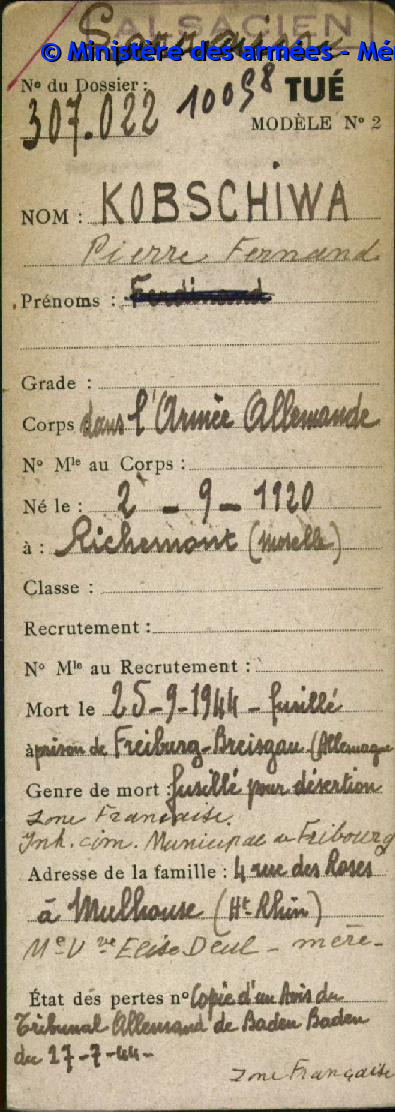 ALSACIEN
Lorrain
© Ministère des armées - Mé
No du Dossier :
307.022 10098 TUÉ
MODÈLE No 2
NOM : KOBSCHIWA
Pierre Fernand
Prénoms : Ferdinand
Grade :
Corps dans l'Armée Allemande
No Mle au Corps :
Né le : 2 - 9 - 1920
à : Richemont (Moselle)
Classe :
Recrutement :
No Mle au Recrutement :
Mort le 25-9-1944 - fusillé
à prison de Freiburg-Breisgau (Allemagne
Genre de mort : fusillé pour désertion
Zone Française.
Inh. cim. Municipal à Fribourg
Adresse de la famille : 4 rue des Roses
à Mulhouse (Ht Rhin)
Me Vve Elise Deul - mère -
État des pertes no Copie d'un Avis du
Tribunal Allemand de Baden Baden
du 17-7-44-
Zone Française